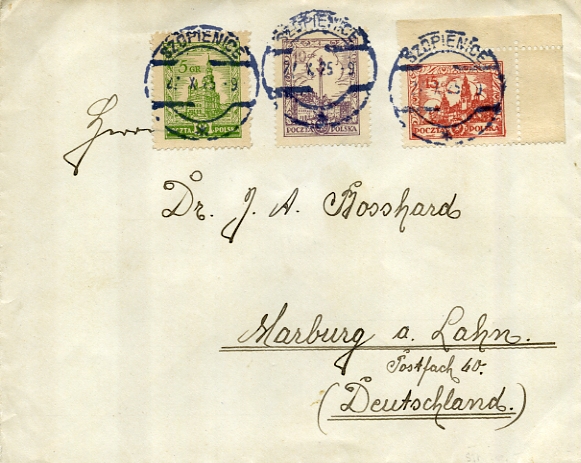 SZOPIENICE
X 25 9
5 GR
POCZTA POLSKA
SZOPIENICE
X 25 9
10
POCZTA POLSKA
SZOPIENICE
25
15
POCZTA POLSKA
Herrn
Dr. J. A. Bosshard
Marburg a. Lahn.
Postfach 40.
(Deutschland.)